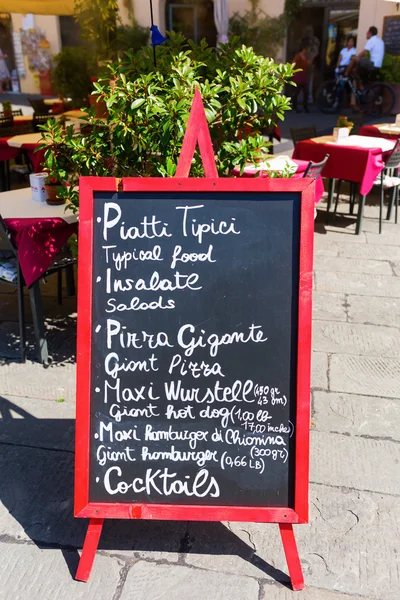 • Piatti Tipici
Typical food
• Insalate
Salads
• Pizza Gigante
Giant Pizza
• Maxi Wurstell (480 gr
43 cm)
Giant hot dog (1,00 LB
17,00 inche)
• Maxi hamburger di Chianina
(300 gr)
Giant hamburger (0,66 LB)
• Cocktails